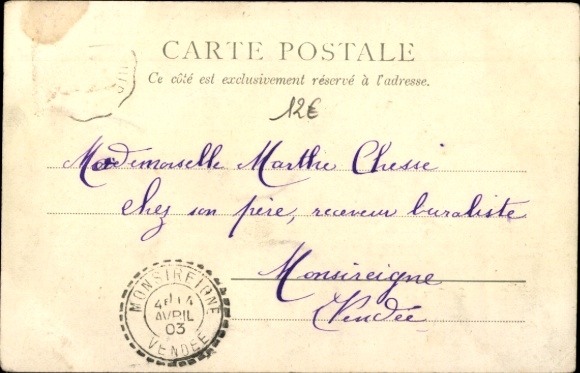 CARTE POSTALE
Ce côté est exclusivement réservé à l'adresse.
12€
Mademoiselle Marthe Chessé
chez son père, receveur buraliste
Monsireigne
Vendée
MONSIREIGNE
14
AVRIL
03
VENDÉE